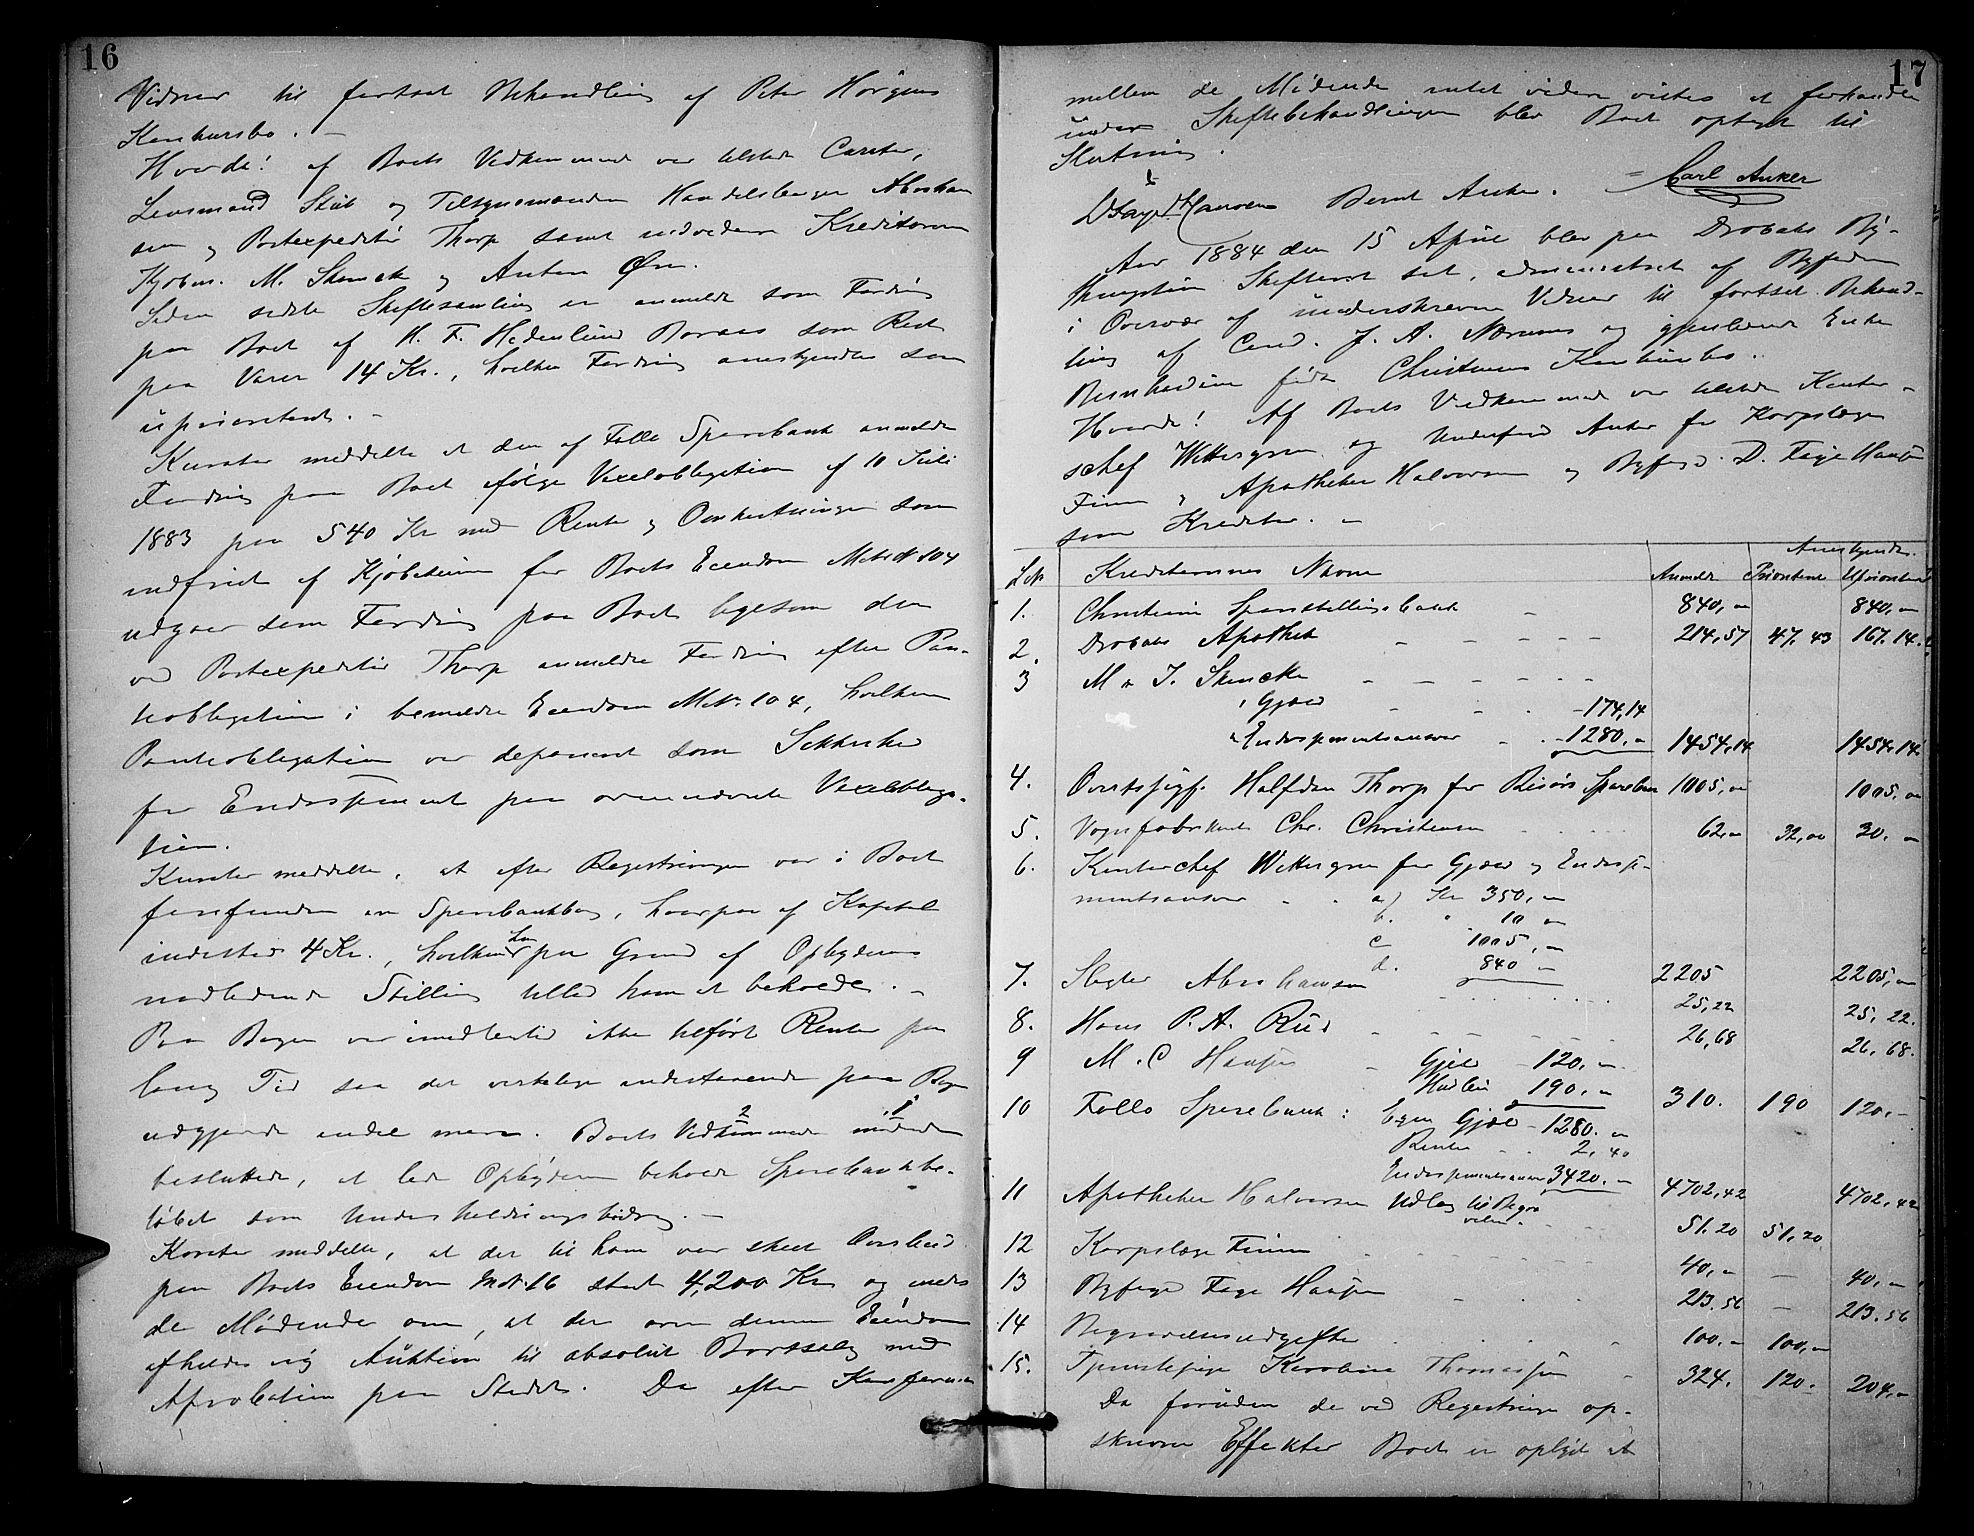 16
Vidner til fortsat Behandling af Peter Hørgens
Konkursbo. –
Hvorda! af Boets Vedkommende var tilstede Curator,
Lensmand Stub og Tilsynsmændene Handelsborger Abraham
sen og Postexpeditør Thorp samt endvidere Kreditorerne
Kjøbm. M. Skencke og Anton Øren.
Siden sidste Skiftesamling er anmeldt som Fordring
paa Boet af H. F. Hedenlund Boraas som Rest
paa Varer 14 Kr., hvilken Fordring anerkjendtes som
uprioriteret. –
Kurator meddelte at den af Follo Sparebank anmeldte
Fordring paa Boet ifølge Vexelobligation af 10 Juli
1883 paa 540 Kr med Renter og Omkostninger som
indfriet af Kjøbesum for Boets Eiendom Mat. N 104
udgaar som Fordring paa Boet ligesom den
ved Postexpeditør Thorp anmeldte Fordring efter Pan-
teobligation i bemeldte Eiendom Mat. 104, hvilken
Panteobligation var deponeret som Sikkerhed
for Endossement paa ovennævnte Vexelobliga-
tion.
Kurator meddelte, at efter Registreringen var i Boet
forefunden en Sparebankbog, hvorpaa af Kapital
indestod 4 Kr., hvilken han paa Grund af Opbyderens
nødlidende Stilling tillod ham at beholde. –
Paa Bogen var imidlertid ikke tilført Renter paa
lang Tid saa det virkelige indestaaende paa Bogen
udgjorde endel mere. Boets Vedkommende 2 mødende 1
besluttede, at lade Opbyderen beholde Sparebankbe-
løbet som Underholdningsbidrag. –
Kurator meddelte, at der til ham var skeet Overbud
paa Boets Eiendom Mat. 16 stort 4,200 Kr og enedes
de Mødende om, at der over denne Eiendom
afholdes ny Auktion til absolut Bortsalg med
Aprobation paa Stedet. Da efter Konferance
17
mellem de Mødende intet videre vistes at forhandle
under Skiftebehandlingen blev Boet optaget til
Slutning.
D Faye Hansen Bernt Anker. Carl Anker
Aar 1884 den 15 April blev paa Drøbaks By-
thingstue Skifteret sat, administreret af Byfogden
i Overvær af underskrevne Vidner til fortsat Behand-
ling af Cand. J. A. Normans og gjenlevende Enke
Bernhardine født Christensens Konkursbo.
Hvorda! Af Boets Vedkommende var tilstede Kontor-
schef Wettergren og Underfoged Anker for Korpslæge
Finne, Apotheker Halvorsen og Byfoged D. Faye Hansen
som Kreditor. –
Anerkjendes.
Lbn Kreditorernes Navne Anmeldt Prioriteret Uprioriteret
1. Christiania Sparstillingsbank – 840, „ 840, „
2. Drøbaks Apothek – 214,57 47.43 167.14.
3 M & J. Skencke
Gjæld – 174,14
Endossementsansvar – 1280. „ 1454,14 1454.14
4. Overretssagf. Halfdan Thorp for Risørs Sparebank 1005, „ 1005, „
5. Vognfabrikant Chr. Christensen 62, „ 32,00 30. „
6. Kontorchef Wettergren for Gjæld og Endosse-
mentsansvar a) Kr 350, „
b. „ 10 „
c 1005, „
d. 840 „ 2205 2205, „
7. Slagter Abrahamsen 25,22 25,22.
8. Hans P. A. Rud 26,68 26,68.
9 M. C Hansen Gjæld 120, „
Husleie 190. „ 310. 190 120, –
10 Follo Sparebank: Egen Gjæld – 1280. „
Renter 2,40
Endossementsansvar 3420. „ 4702,42 4702,42
11 Apotheker Halvorsen Udlæg til Begra
velsen. 51.20 51,20
12 Korpslæge Finne 40, „ – 40, „
13 Byfoged Faye Hansen 213.56 – 213.56
14 Begravelsesudgifter 100. „ 100, „
15. Tjenestepige Karoline Thomassen 324. 120. 204, „
Da foruden de ved Registreringen op-
skrevne Effekter Boet er oplyst at